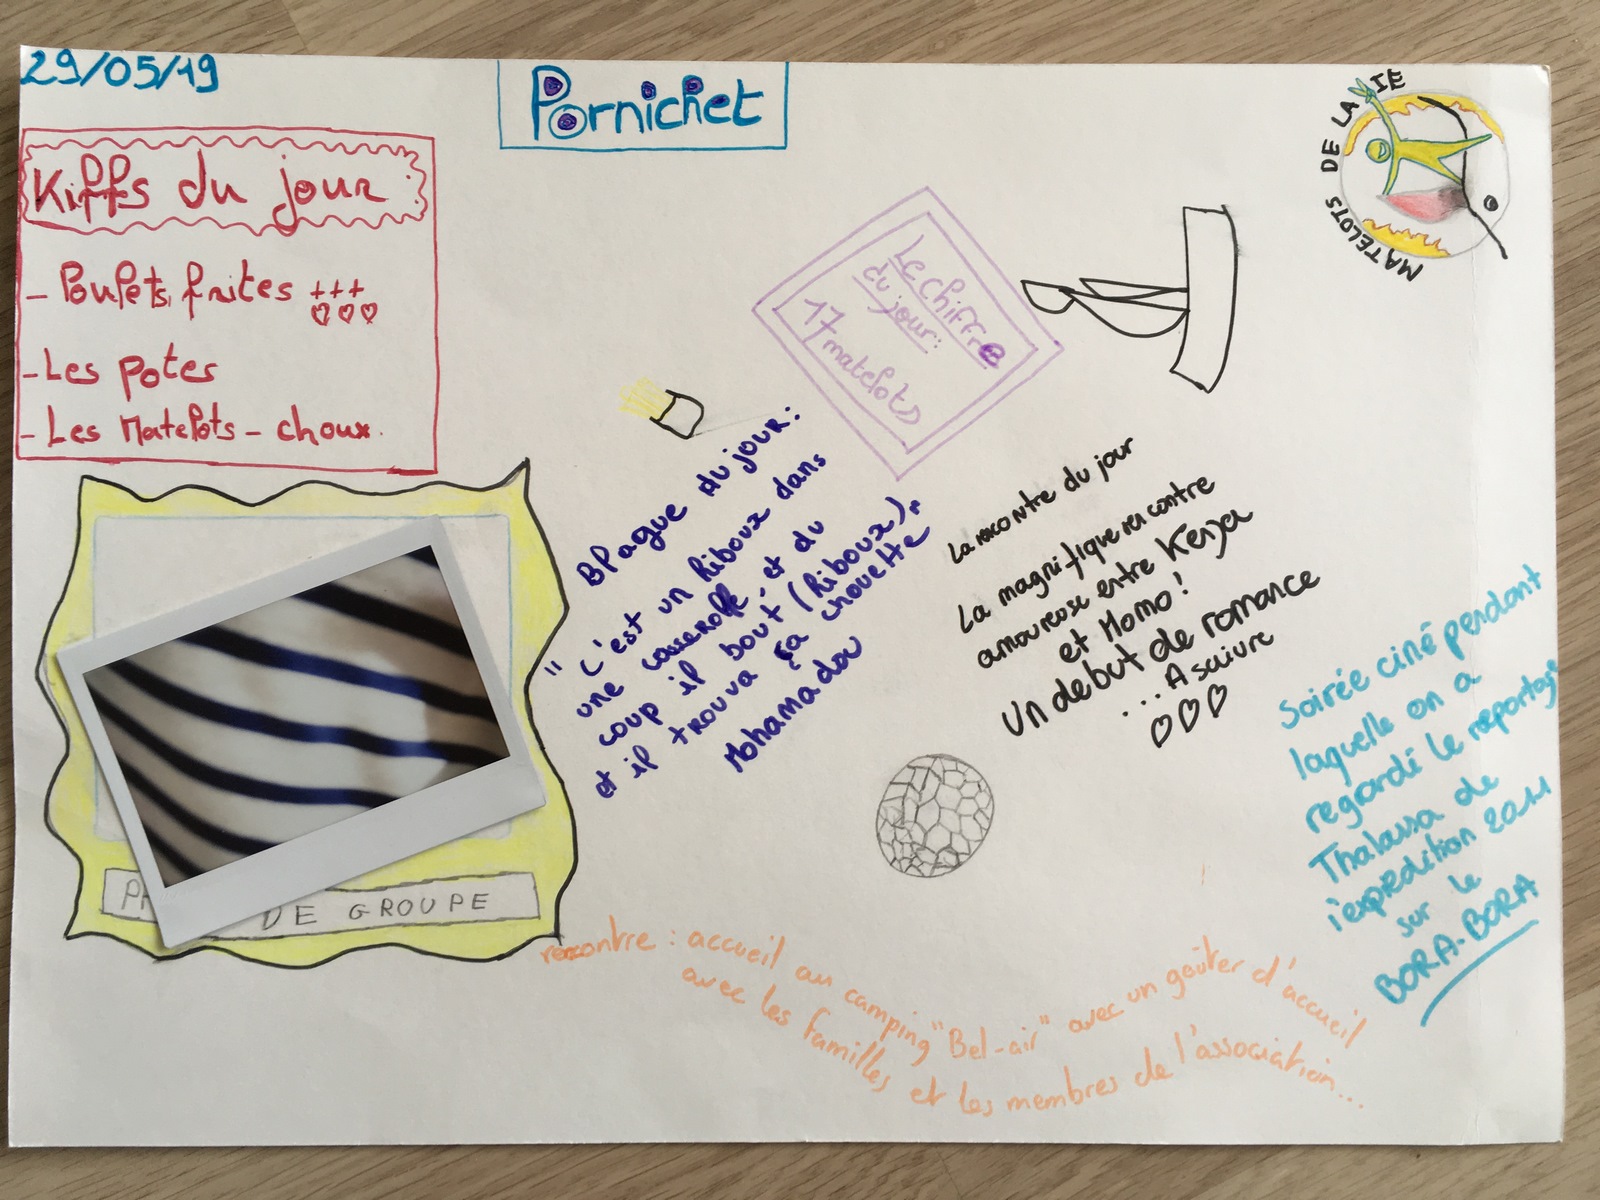 29/05/19
Pornichet
MATELOTS DE LA VIE
Kiffs du jour
- Poulets, frites +++
- Les potes
- Les Matelots - choux.
Le chiffre
du jour:
17 matelots
Blague du jour:
"C'est un hiboux dans
une casserole, et du
coup il bout (hiboux),"
et il trouva ça chouette
Mohamadou
La rencontre du jour
La magnifique rencontre
amoureuse entre Kenja
et Momo!
Un debut de romance
... A suivre
Soirée ciné pendant
laquelle on a
regardé le reportage
Thalassa de
l'expédition 2011
sur le
BORA-BORA
DE GROUPE
rencontre : accueil au camping "Bel-air" avec un goûter d'accueil
avec les familles et les membres de l'association...